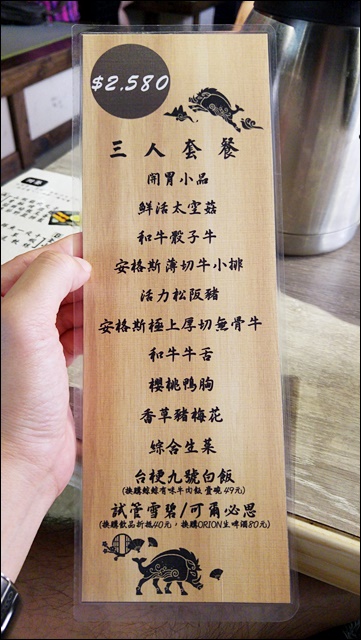 $2.580
三人套餐
開胃小品
鮮活太空菇
和牛骰子牛
安格斯薄切牛小排
活力松阪豬
安格斯極上厚切無骨牛
和牛牛舌
櫻桃鴨胸
香草豬梅花
綜合生菜
台梗九號白飯
試管雪碧/可爾必思
(換購飲品折抵40元，換購ORION生啤酒80元)